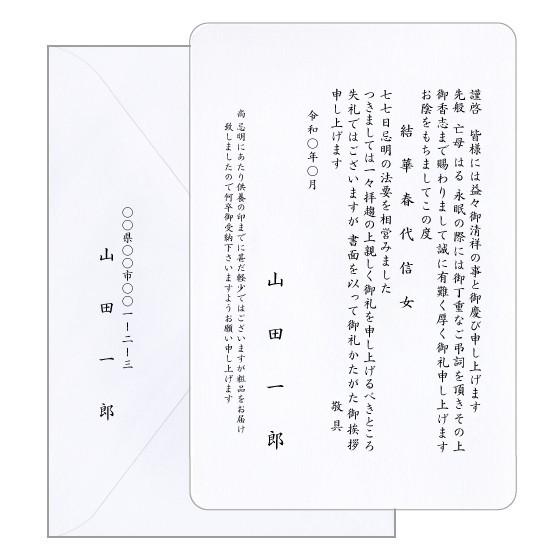 謹啓　皆様には益々御清祥の事と御慶び申し上げます
先般 亡母 はる 永眠の際には御丁重なご弔詞を頂きその上
御香志まで賜わりまして誠に有難く厚く御礼申し上げます
お陰をもちましてこの度
結華春代信女
七七日忌明の法要を相営みました
つきましては一々拝趨の上親しく御礼を申し上げるべきところ
失礼ではございますが 書面を以って御礼かたがた御挨拶
申し上げます
敬具
令和〇年〇月
山田一郎
尚 忌明にあたり供養の印までに甚だ軽少ではございますが粗品をお届け
致しましたので何卒御受納下さいますようお願い申し上げます
〇〇県〇〇市〇〇一ー二ー三
山田一郎